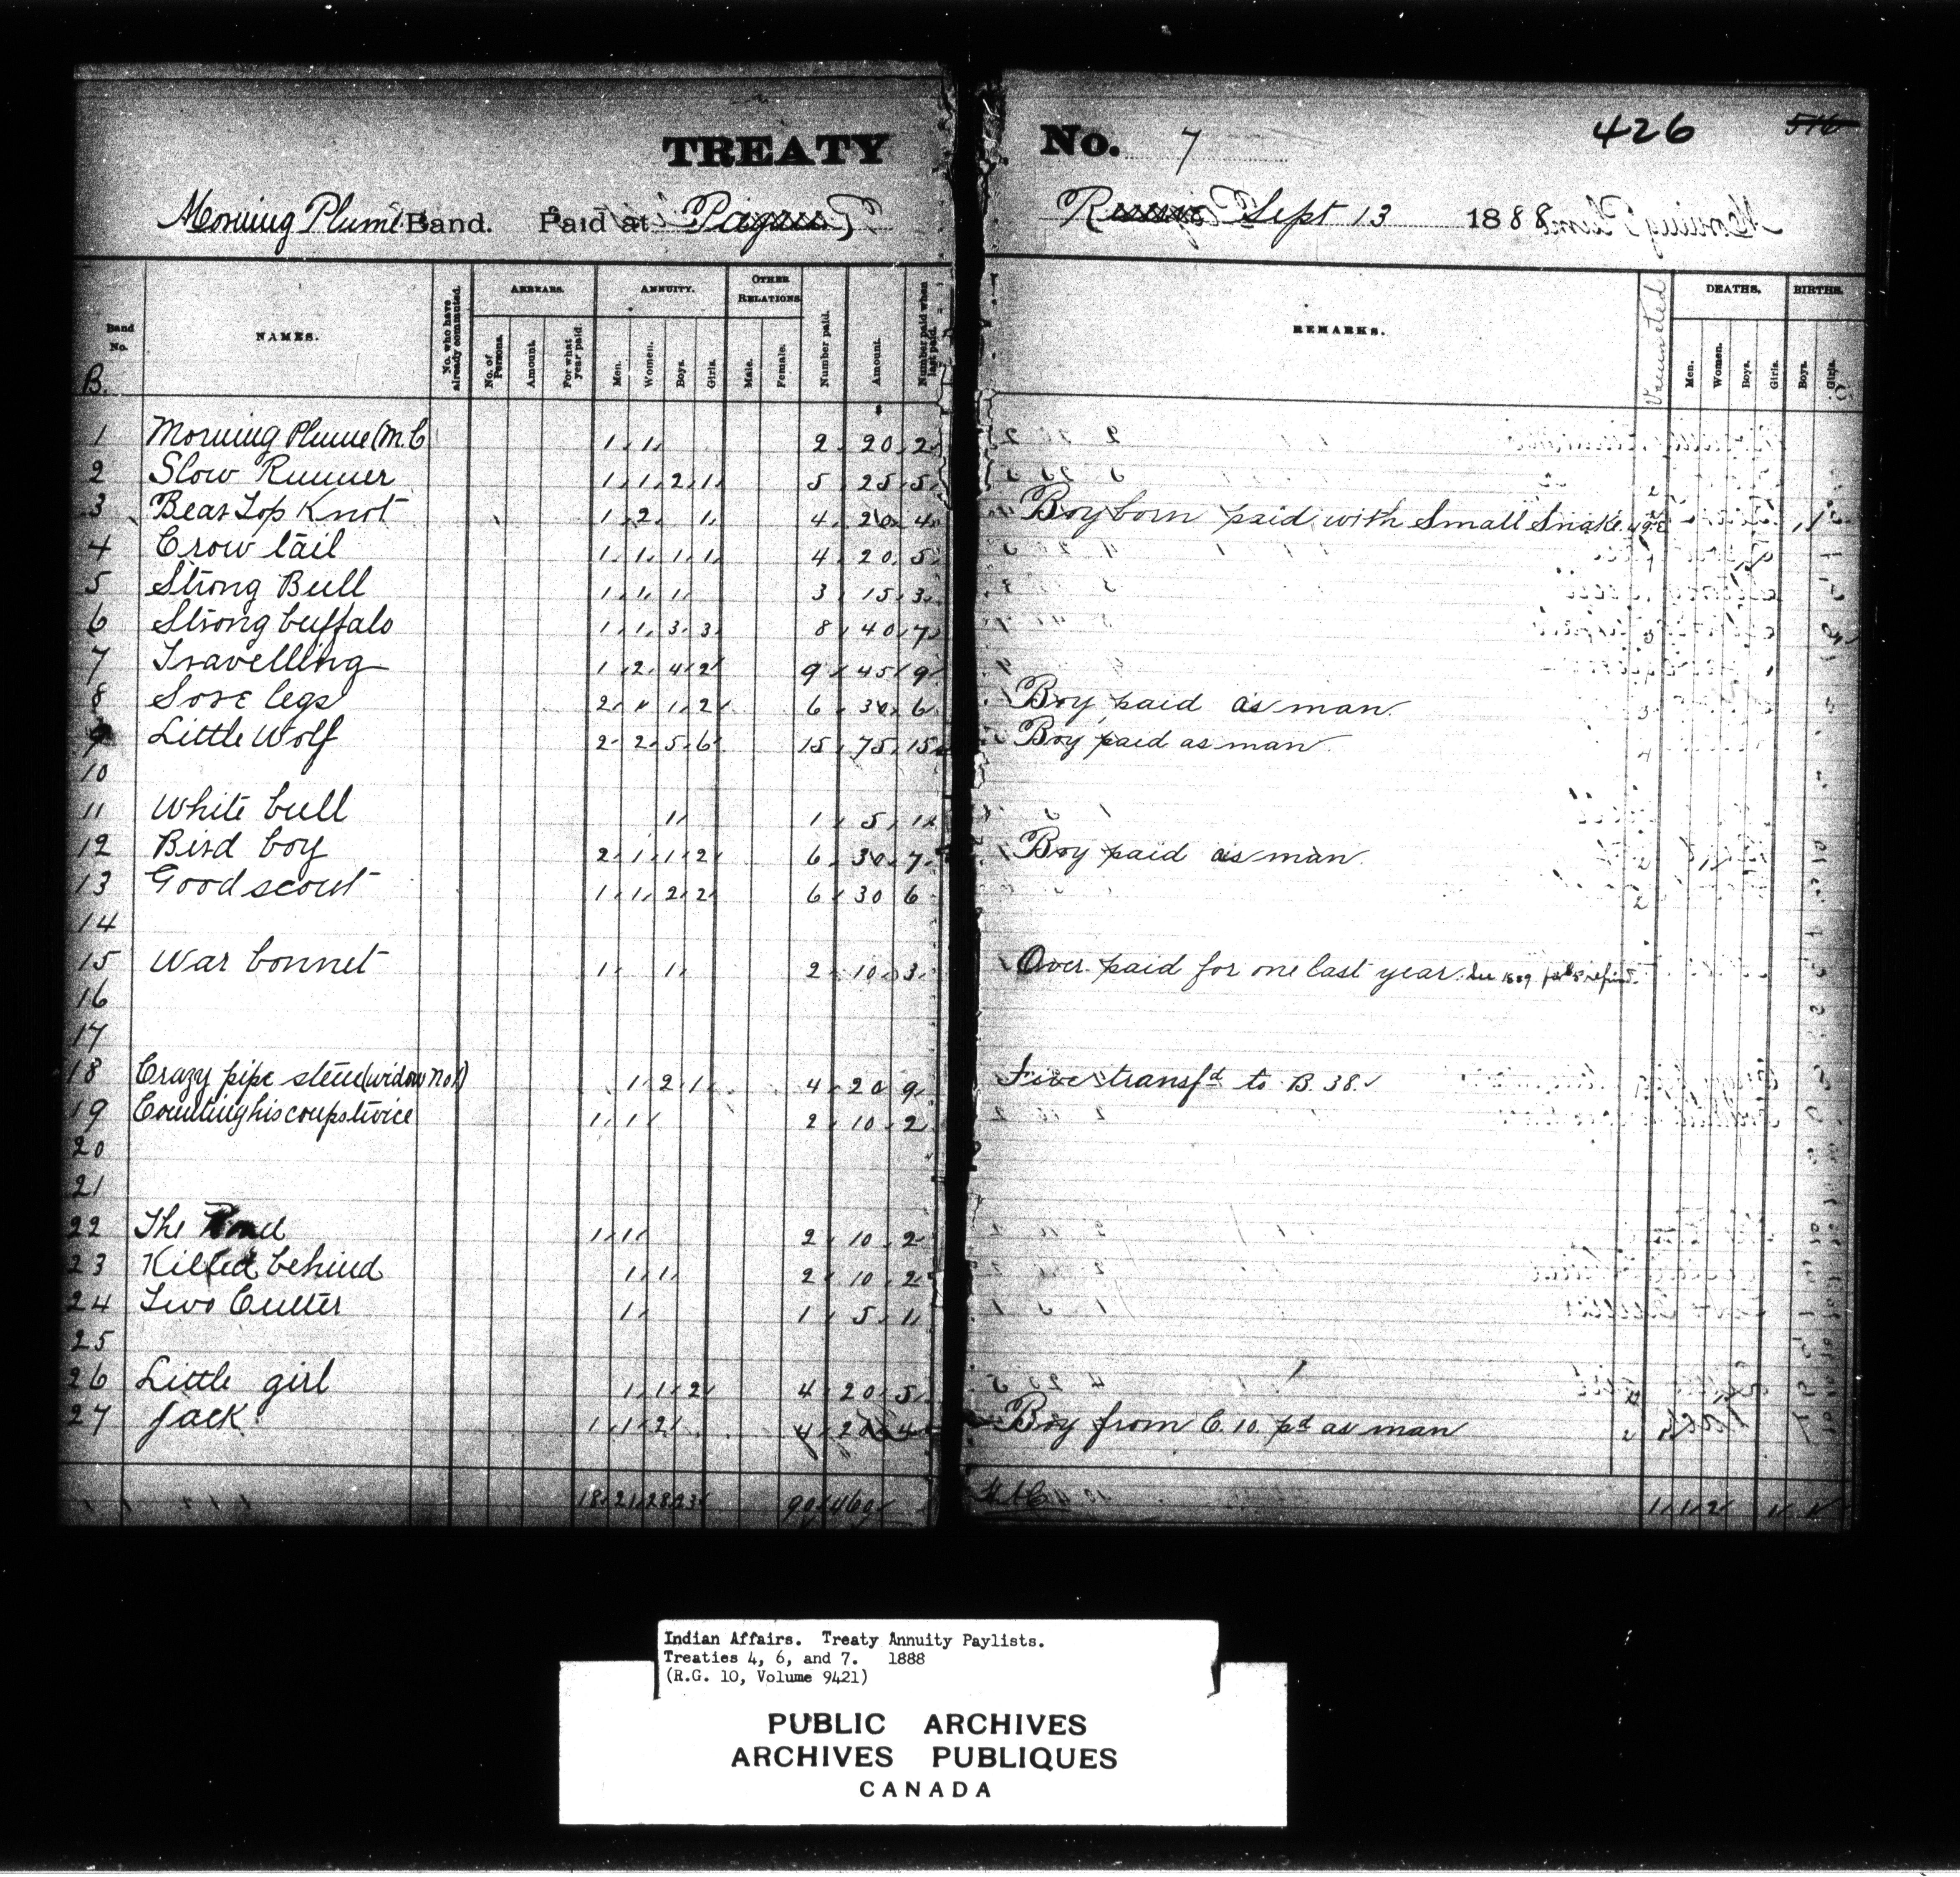 TREATY No. 7 426 516
Morning Plume Band. Paid at Sept 13 1888
Band No. NAMES. No. who have already commuted. ARREARS. No. of Persons. Amount. For what year paid. ANNUITY. Men. Women. Boys. Girls. OTHER RELATIONS Male. Female. Number paid. Amount. Number paid when last paid. REMARKS. Vaccinated DEATHS. Men. Women. Boys. Girls. BIRTHS. Boys. Girls.
B.
1 Morning Plume (M.C 1 1 2 20 2
2 Slow Runner 1 1 2 1 5 25 5
3 Bear Top Knot 1 2 1 4 20 4 Boy born paid with Small Snake 1
4 Crow tail 1 1 1 1 4 20 5
5 Strong Bull 1 1 1 3 15 3
6 Strong buffalo 1 1 3 3 8 40 7
7 Travelling 1 2 4 2 9 45 9
8 Sore legs 2 " 1 2 6 30 6 Boy paid as man. 3
9 Little Wolf 2 2 5 6 15 75 15 Boy paid as man. 4
10
11 White bull 1 1 5 1
12 Bird boy 2 1 1 2 6 30 7 Boy paid as man. 2 1
13 Good scout 1 1 2 2 6 30 6 2
14
15 War bonnet 1 1 2 10 3 Over paid for one last year. See 1889 for $5 refund.
16
17
18 Crazy pipe stem (widow No 1) 1 2 1 4 20 9 Five transfd to B. 38.
19 Counting his coups twice 1 1 2 10 2
20
21
22 The Road 1 1 2 10 2
23 Killed behind 1 1 2 10 2
24 Two Cutter 1 1 5 1
25
26 Little girl 1 1 2 4 20 5
27 Jack 1 1 2 4 20 4 Boy from C. 10. pd as man 2
18 21 28 23 90 460 1 1 2 1 1
Indian Affairs. Treaty Annuity Paylists.
Treaties 4, 6, and 7. 1888
(R.G. 10, Volume 9421)
PUBLIC ARCHIVES
ARCHIVES PUBLIQUES
CANADA